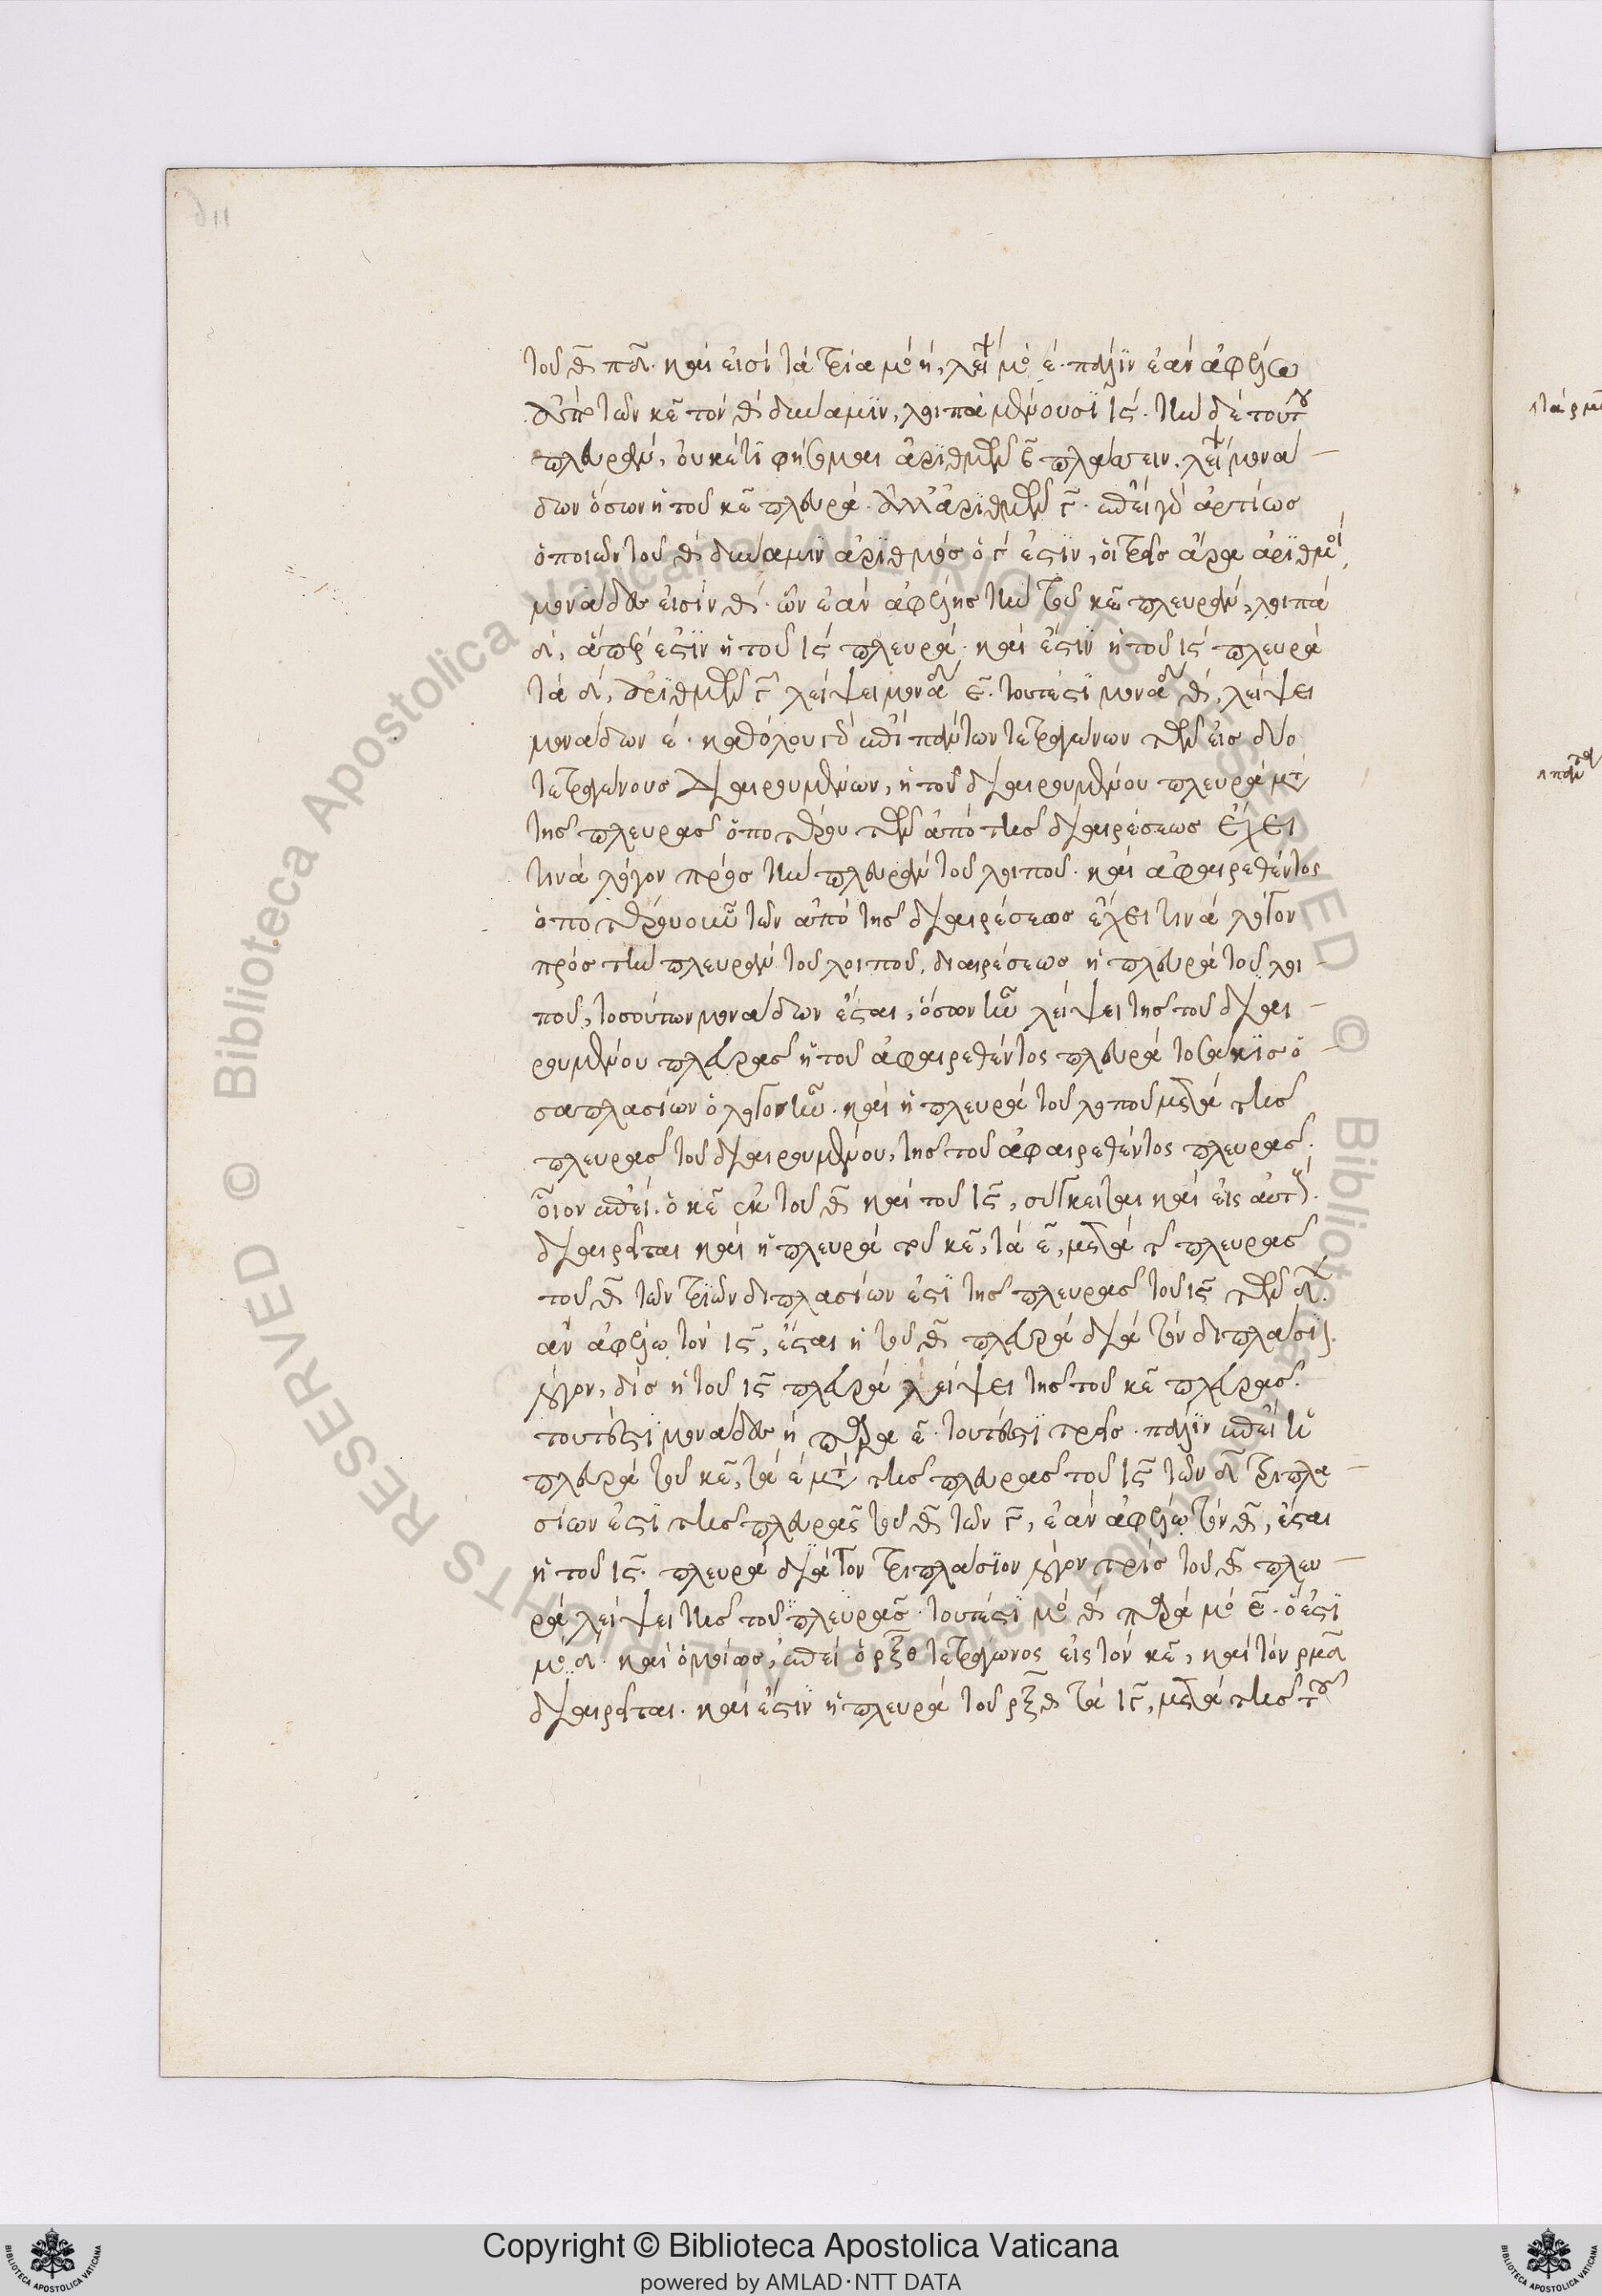 τοῦ θ̄ πλ. καὶ εἰσὶ τὰ τρία μο ή, λείψει μο έ. πάλιν ἐὰν ἀφέλω
ἀπὸ τῶν κε τὸν θ δύναμιν, λοιπὰ μένουσι ις. τὴν δὲ τούτου
πλευρὰν, οὐκέτι φήσομαι ἀριθμῶν β πλάσσειν, λείψει μονά
δων ὅσων ἡ τοῦ κε πλευρά. ἀλλ' ἀριθμῶν γ. ἐπεὶ γὰρ ἀρτίως
ὁ ποιῶν τοῦ θ δύναμιν ἀριθμὸς ὁ γ ἐστὶν, οἱ τρεῖς ἄρα ἀριθμοὶ
μονάδες εἰσὶν θ. ὧν ἐὰν ἀφέλῃς τὴν τοῦ κε πλευρὰν, λοιπὰ
δ, ἅπερ ἐστὶν ἡ τοῦ ις πλευρά. καὶ ἐστὶν ἡ τοῦ ις πλευρὰ
τὰ δ, ἀριθμῶν γ λείψει μονάδων ε. τουτέστι μονάδων θ, λείψει
μονάδων έ. καθόλου γὰρ ἐπὶ πάντων τετραγώνων τῶν εἰς δύο
τετραγώνους διαιρουμένων, ἡ τοῦ διαιρουμένου πλευρὰ μετὰ
τῆς πλευρᾶς ὁποτέρου τῶν ἀπὸ τῆς διαιρέσεως ἔχει
τινὰ λόγον πρὸς τὴν πλευρὰν τοῦ λοιποῦ. καὶ ἀφαιρεθέντος
ὁποτέρου οὖν τῶν ἀπὸ τῆς διαιρέσεως ἔχει τινὰ λόγον
πρὸς τὴν πλευρὰν τοῦ λοιποῦ, διαιρέσεως ἡ πλευρὰ τοῦ λοι
ποῦ, τοσούτων μονάδων ἔσται, ὅσων λείψει τῆς τοῦ διαι
ρουμένου πλευρᾶς ἡ τοῦ ἀφαιρεθέντος πλευρὰ τοσάκις ὁ
σαπλασίων ὁ λόγος ἦν. καὶ ἡ πλευρὰ τοῦ λοιποῦ μετὰ τῆς
πλευρᾶς τοῦ διαιρουμένου, τῆς τοῦ ἀφαιρεθέντος πλευρᾶς.
οἷον ἐπεὶ ὁ κε ἐκ τοῦ θ καὶ τοῦ ις, σύγκειται καὶ εἰς αὐτοὺς
διαιρεῖται καὶ ἡ πλευρὰ τοῦ κε, τὰ ε, μετὰ τῆς πλευρᾶς
τοῦ θ τῶν τριῶν διπλασίων ἐστὶ τῆς πλευρᾶς τοῦ ις τῶν δ.
ἂν ἀφέλω τὸν ις, ἔσται ἡ τοῦ θ πλευρὰ διὰ τὸν διπλάσιον
λόγον, δὶς ἡ τοῦ ις πλευρὰ λείψει τῆς τοῦ κε πλευρᾶς.
τουτέστι μονάδες ή παρὰ ε. τουτέστι τρεῖς. πάλιν ἐπεὶ ἡ
πλευρὰ τοῦ κε, τὰ έ μετὰ τῆς πλευρᾶς τοῦ ις τῶν δ τριπλα
σίων ἐστὶ τῆς πλευρᾶς τοῦ θ τῶν γ, ἐὰν ἀφέλω τὸν θ, ἔσται
ἡ τοῦ ις. πλευρὰ διὰ τὸν τριπλάσιον λόγον τρὶς τοῦ θ πλευ
ρὰ λείψει τῆς τοῦ πλευρᾶς. τουτέστι μο θ παρὰ μο ε. ὅ ἐστι
μο δ. καὶ ὁμοίως, ἐπεὶ ὁ ρξθ τετράγωνος εἰς τὸν κε, καὶ τὸν ρμδ
διαιρεῖται. καὶ ἐστὶν ἡ πλευρὰ τοῦ ρξθ τὰ ιγ, μετὰ τῆς τοῦ
Copyright © Biblioteca Apostolica Vaticana
powered by AMLAD·NTT DATA